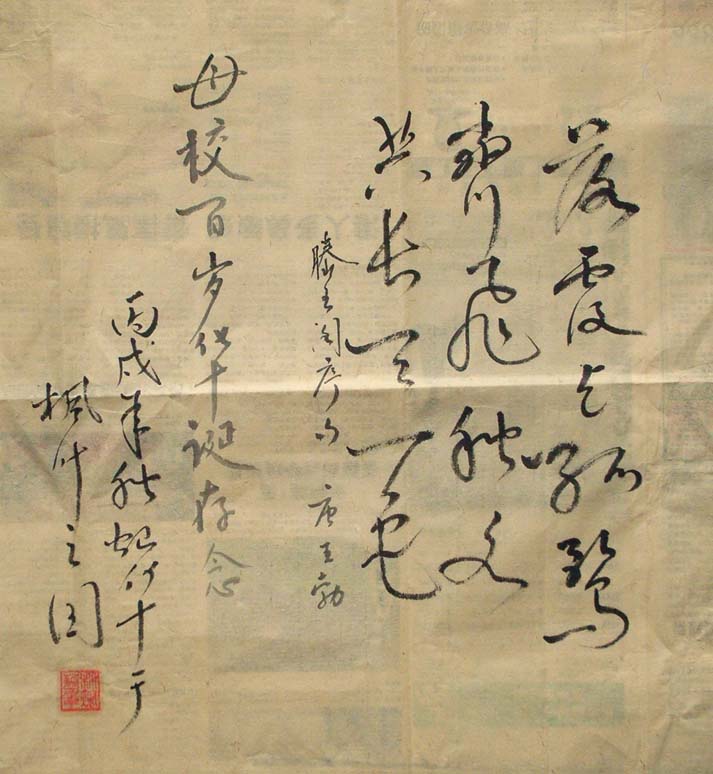 落霞与孤鹜
齐飞秋水
共长天一色
滕王阁序句 唐王勃
母校百岁华诞存念
丙戌年秋虹华于
枫叶之国